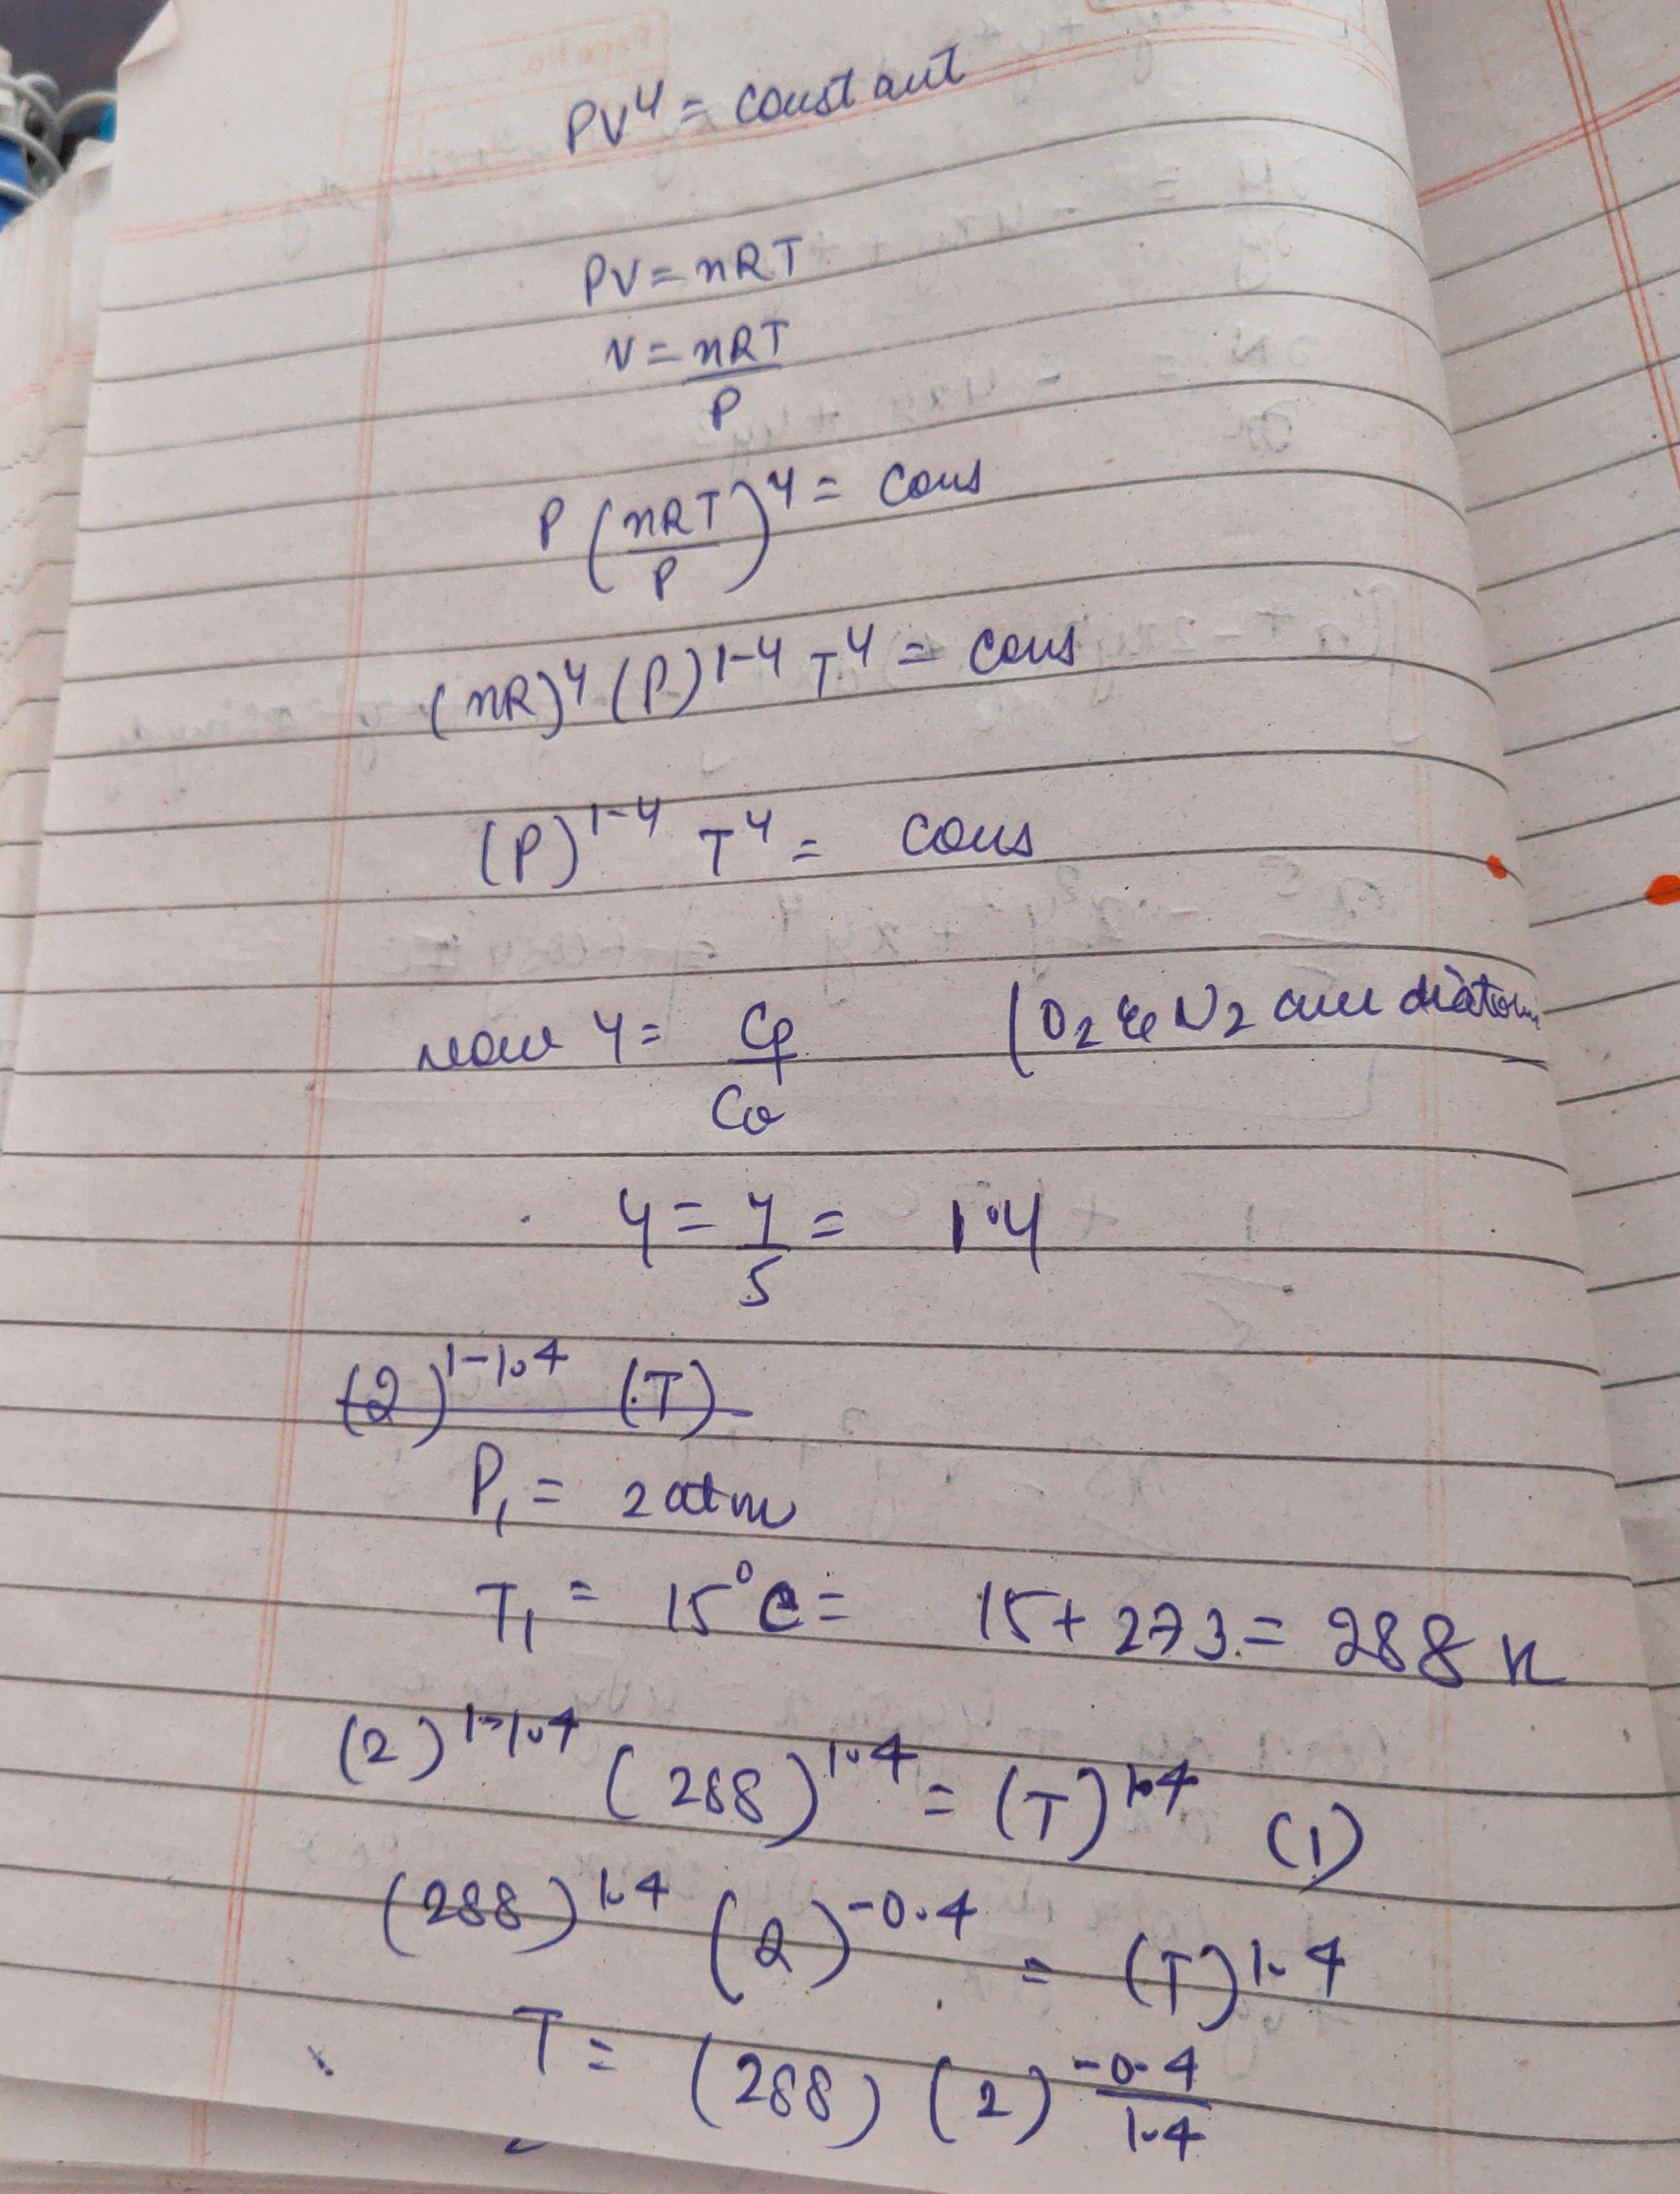 PV^γ = constant
PV = nRT
V = nRT/P
P (nRT/P)^γ = cons
(nR)^γ (P)^1-γ T^γ = cons
(P)^1-γ T^γ = cons
now γ = Cp/Cv (O2 & N2 are diatom
γ = 7/5 = 1.4
(2)^1-1.4 (T)
P1 = 2 atm
T1 = 15°C = 15 + 273 = 288 K
(2)^1-1.4 (288)^1.4 = (T)^1.4 (1)
(288)^1.4 (2)^-0.4 = (T)^1.4
T = (288) (2)^-0.4/1.4